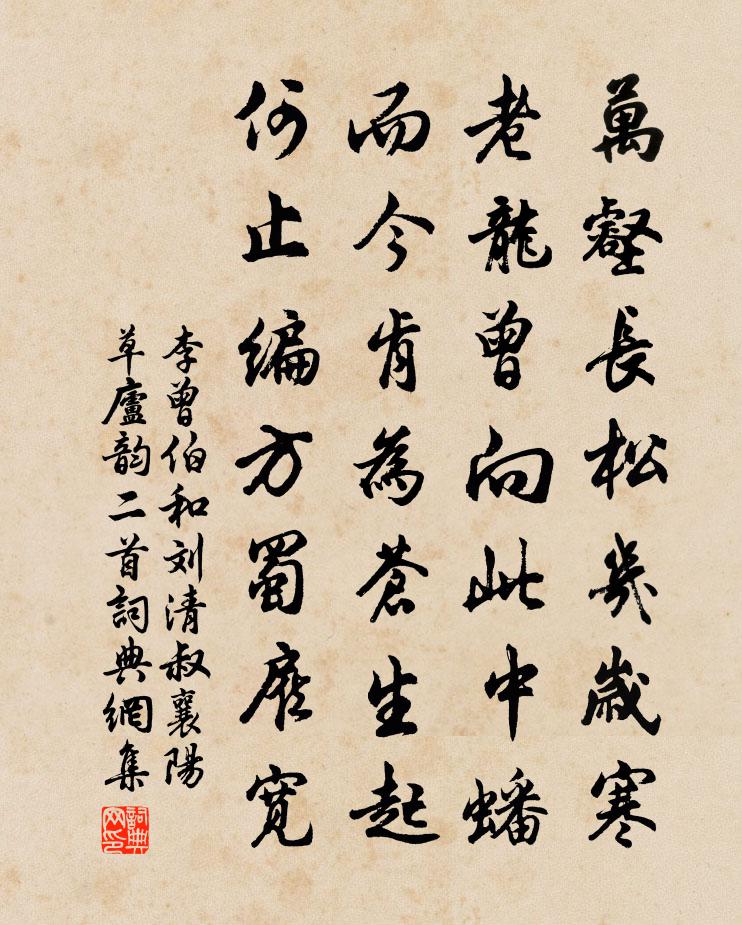 萬壑長松幾歲寒
老龍曾向此中蟠
而今肯為蒼生起
何止编方蜀庶寬
李曾伯和刘清叔襄陽
草廬韵二首詞典網集
詞典网印